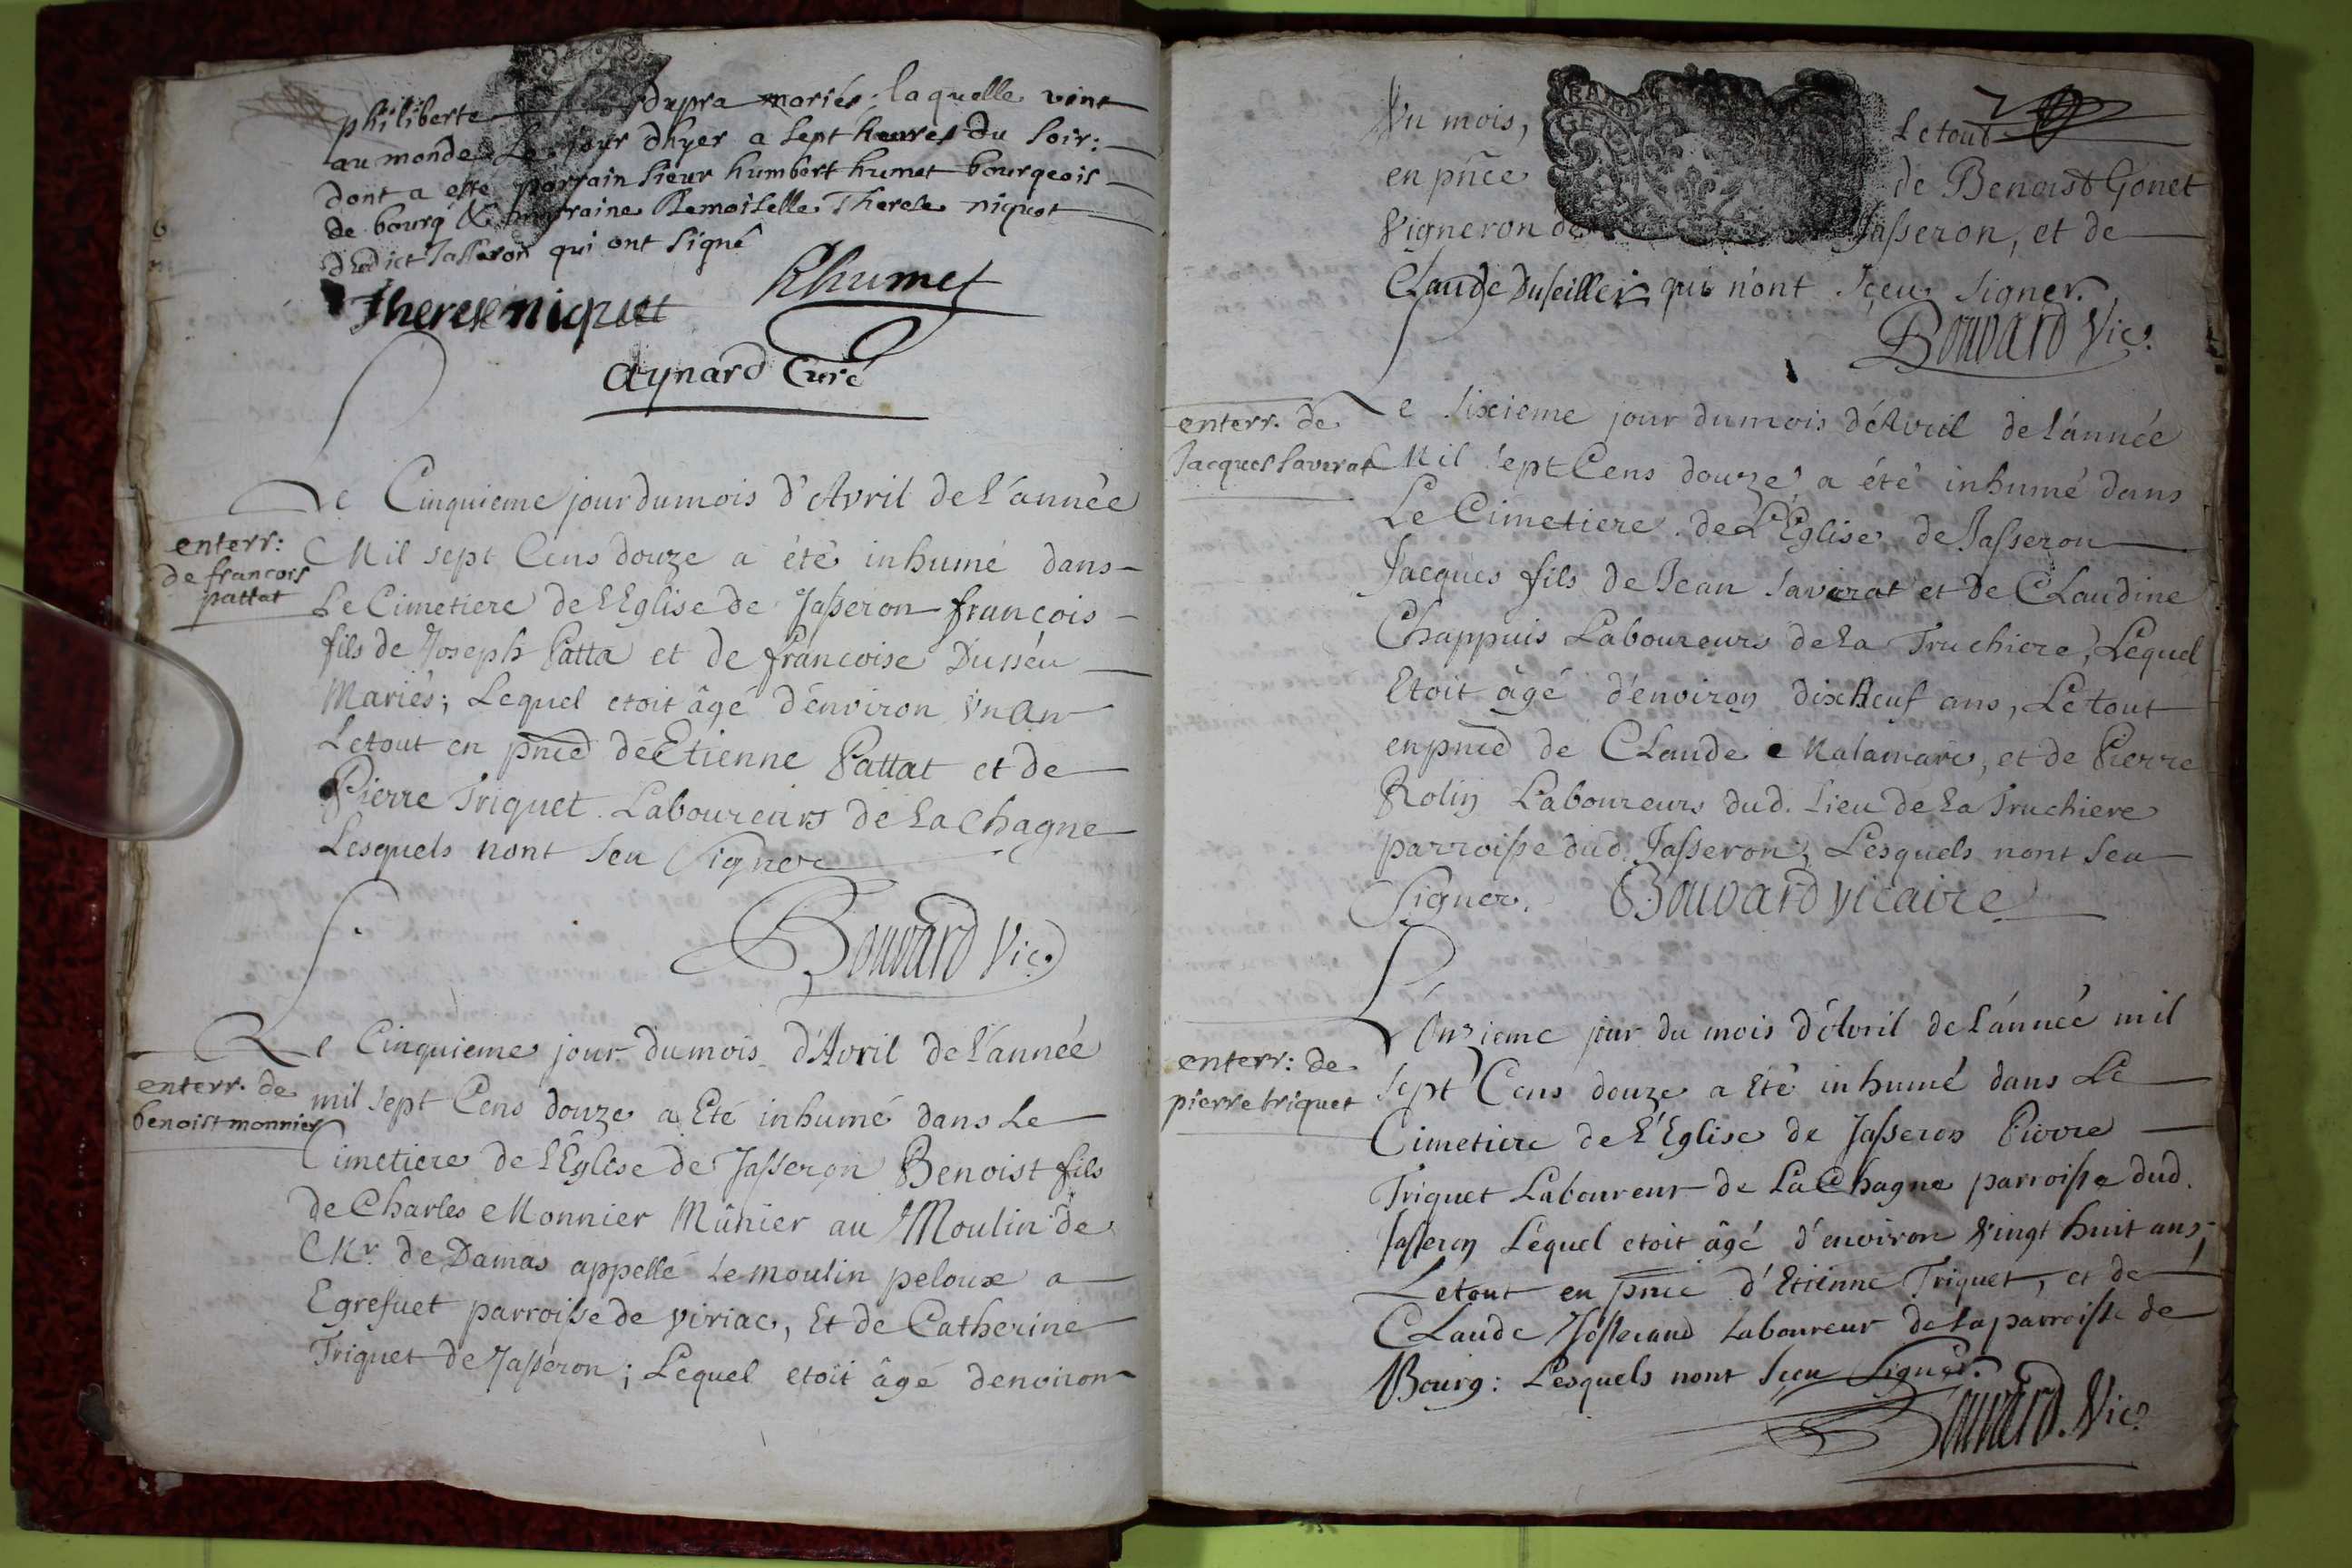 philiberte dupra mariés, laquelle vint
au monde le jour dhyer a sept heures du soir:
dont a esté parrain sieur humbert humet bourgeois
de bourg & marraine Demoiselle Therese niquet
dudict Jasseron qui ont signé
Therese niquet
hhumet
Aynard Curé
enterr:
de francois
pattat
Le Cinquieme jour du mois d'Avril de l'année
Mil sept Cens douze a été inhumé dans
Le Cimetiere de L'Eglise de Jasseron françois
fils de Joseph Patta et de francoise Dusséu
Mariés; Lequel etoit âgé d'énviron Vn An
Le tout en pnce dé Etienne Pattat et de
Pierre Triquet Laboureurs de La Chagne
Lesquels nont seu Signer
Bouvard Vic.
enterr. de
benoist monnier
Le Cinquieme jour du mois d'Avril de l'année
mil sept Cens douze a Eté inhumé dans Le
Cimetiere de L'Eglise de Jasseron Benoist fils
de Charles Monnier Mûnier au Moulin de
Mr. de Damas appellé Le moulin peloux a
Egrefuet parroisse de viriac, Et de Catherine
Triquet de Jasseron; Lequel etoit âgé denviron
Vn mois, Le tout
en pnce de Benoist Gonet
Vigneron de Jasseron, et de
Claude Duseiller qui n'ont sçeu signer.
Bouvard Vic.
enterr. de
Jacques Saverat
Le sixieme jour du mois d'Avril de l'année
Mil sept Cens douze a été inhumé dans
Le Cimetiere de L'Eglise de Jasseron
Jacques fils de Jean Savarat et de Claudine
Chappuis Laboureurs de La Truchiere, Lequel
Etoit âgé d'environ dix Neuf ans, Le tout
en pnce de Claude Malamare, et de Pierre
Rolin Laboureurs dud. Lieu de La Truchiere
parroisse dud. Jasseron; Lesquels nont seu
Signer. Bouvard vicaire
enterr: de
pierre triquet
L'Onzieme jour du mois d'Avril de L'année mil
sept Cens douze a Eté inhumé dans Le
Cimetiere de L'Eglise de Jasseron Pierre
Triquet Laboureur de La Chagne parroisse dud.
Jasseron Lequel etoit âgé d'environ Vingt huit ans,
Le tout en pnce d'Etiénne Triquet, et de
Claude Josserand Laboureur de la parroisse de
Bourg: Lesquels nont sçeu Signer.
Bouvard. Vic.